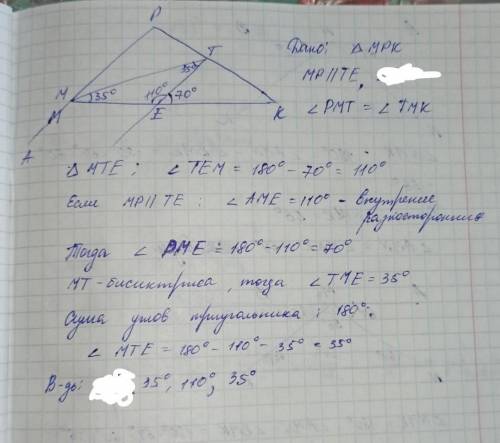 P
T
35°
M
M
35°
110°
70°
E
K
A
Дано: Δ MPK
MP || TE,
∠PMT = ∠TMK
Δ MTE; ∠TEM = 180° - 70° = 110°
Если MP || TE: ∠AME = 110° - внутренние
разносторонние
Тогда ∠ PME = 180° - 110° = 70°
MT - бисиктриса, тогда ∠TME = 35°
Сума углов триугольника: 180°.
∠ MTE = 180° - 110° - 35° = 35°
В-дь: 35°, 110°, 35°